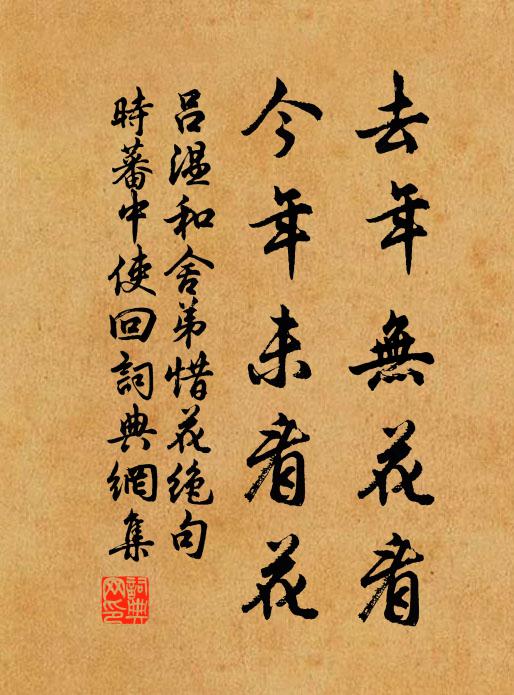 去年無花看
今年未看花
呂温和舍弟惜花絶句
時蕃中使回詞典網集
詞典
网印